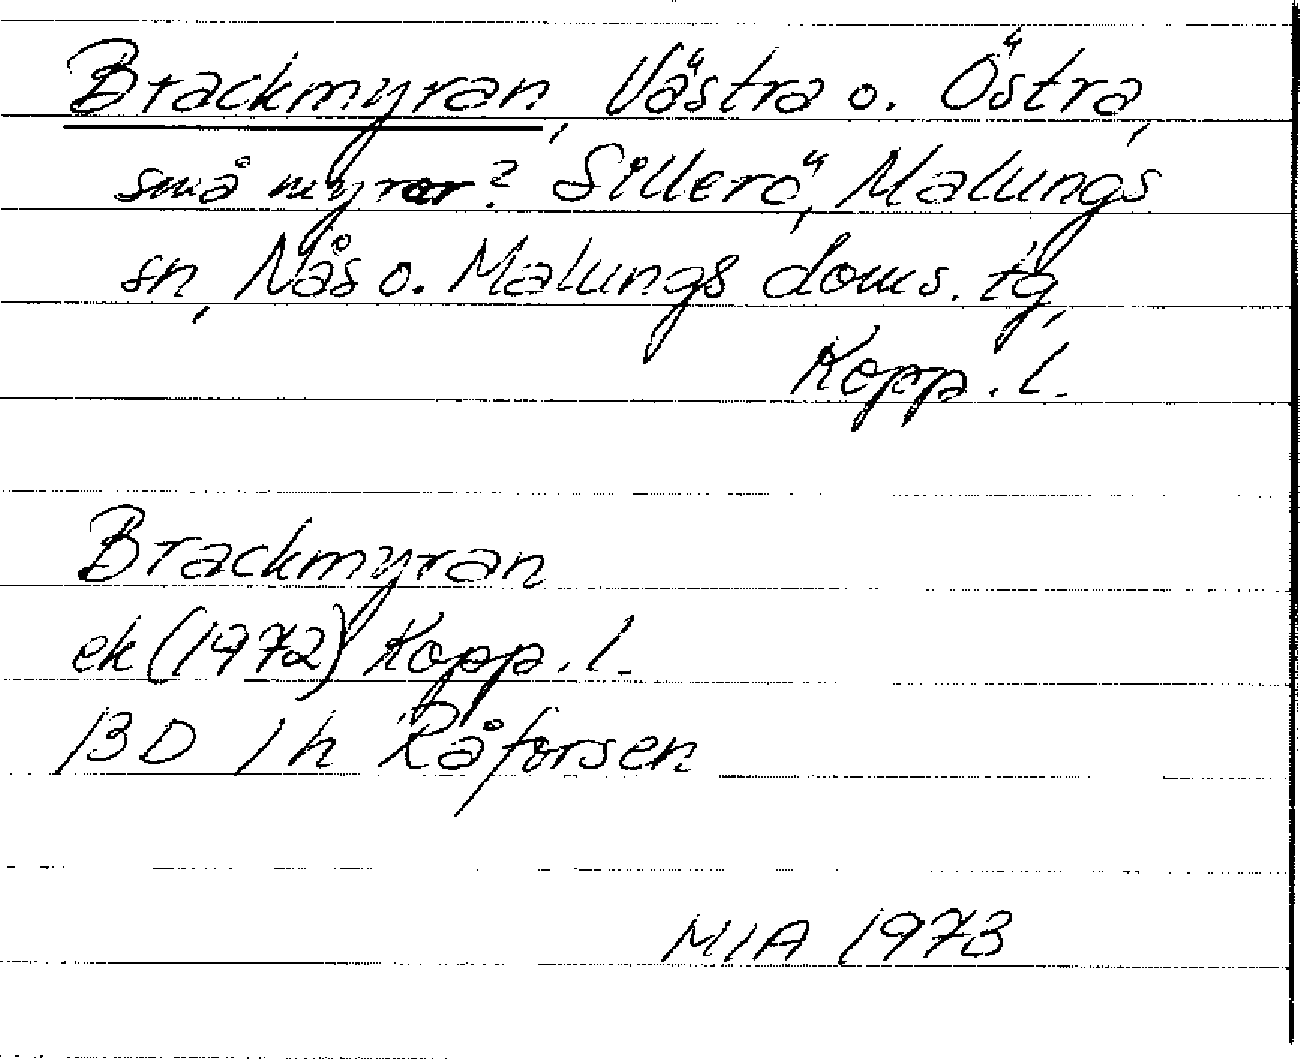 Brackmyran, Västra o. Östra,
små myrar? Sillerö, Malungs
sn, Nås o. Malungs doms. tg,
Kopp. l.
Brackmyran
ek (1972) Kopp. l.
13D 1h Råforsen
MIA 1973